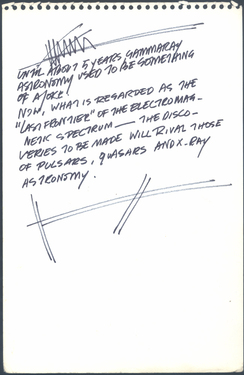 UNTIL ABOUT 5 YEARS, GAMMARAY
ASTRONOMY USED TO BE SOMETHING
OF A JOKE.
NOW, WHAT IS REGARDED AS THE
"LAST FRONTIER" OF THE ELECTROMAG-
NETIC SPECTRUM — THE DISCO-
VERIES TO BE MADE WILL RIVAL THOSE
OF PULSARS, QUASARS AND X-RAY
ASTRONOMY.